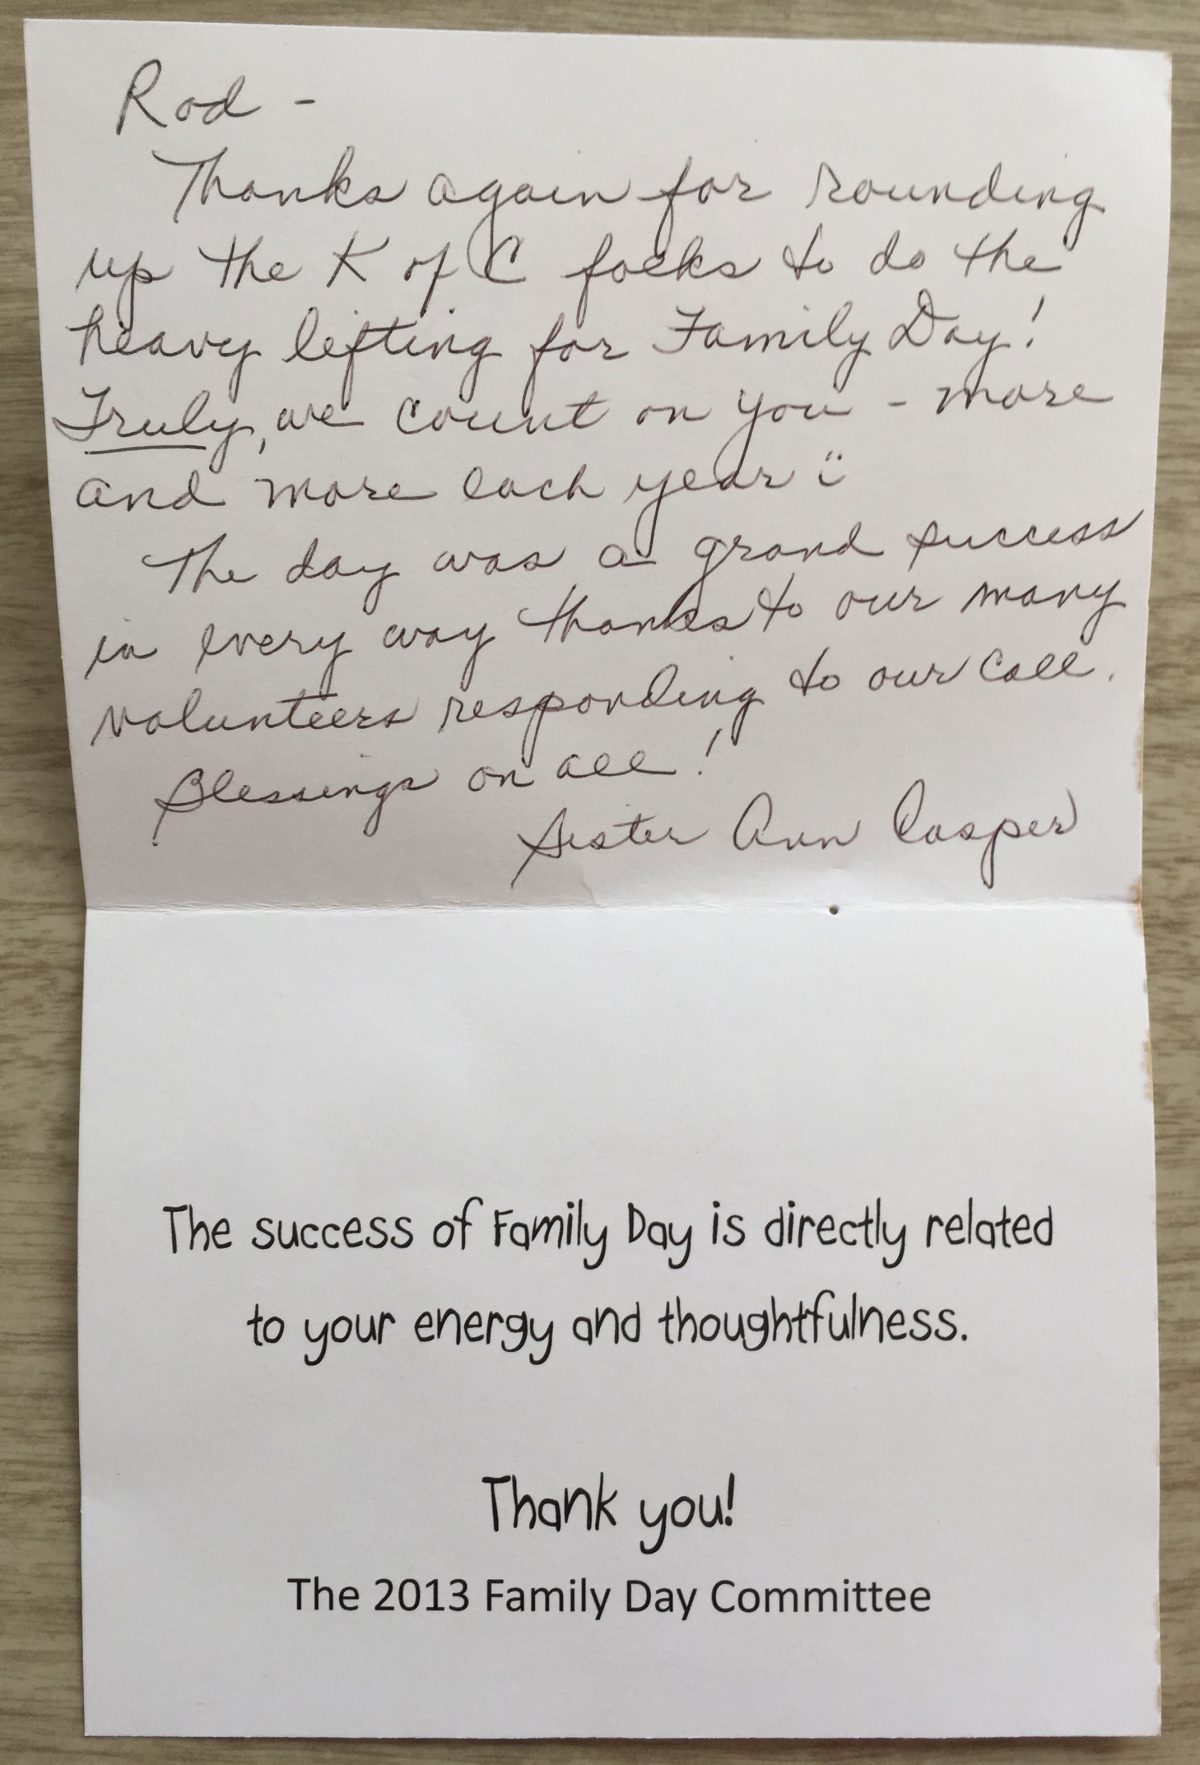 Rod -
Thanks again for rounding
up the K of C folks to do the
heavy lifting for Family Day!
Truly, we count on you - more
and more each year :)
The day was a grand success
in every way thanks to our many
volunteers responding to our call.
Blessings on all!
Sister Ann Casper
The success of Family Day is directly related
to your energy and thoughtfulness.
Thank you!
The 2013 Family Day Committee